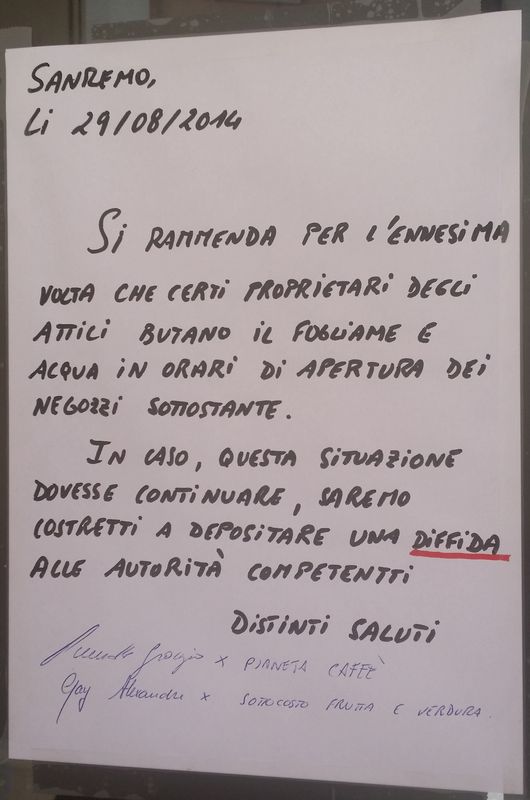 SANREMO,
Li 29/08/2014
Si RAMMENDA PER L'ENNESIMA
VOLTA CHE CERTI PROPRIETARI DEGLI
ATTILI BUTANO IL FOGLIAME E
ACQUA IN ORARI DI APERTURA DEI
NEGOZZI SOTTOSTANTE.
IN CASO, QUESTA SITUAZIONE
DOVESSE CONTINUARE, SAREMO
COSTRETTI A DEPOSITARE UNA DIFFIDA
ALLE AUTORITÀ COMPETENTTI
DISTINTI SALUTI
x PIANETA CAFFÈ
Gay Alexandre x SOTTOCOSTO FRUTTA E VERDURA.